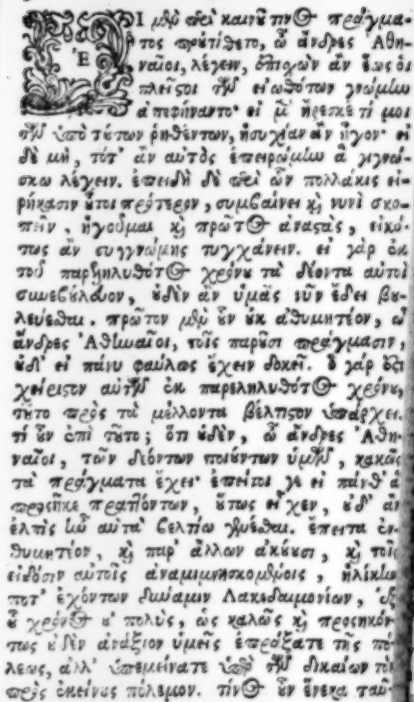 ΕΙ μὲν περὶ καινοῦ τινος πράγμα-
τος προὐτίθετο, ὦ ἄνδρες Ἀθη-
ναῖοι, λέγειν, ἐπισχὼν ἂν ἕως οἱ
πλεῖστοι τῶν εἰωθότων γνώμην
ἀπεφήναντο· εἰ μὲν ἤρεσκέ τί μοι
τῶν ὑπὸ τούτων ῥηθέντων, ἡσυχίαν ἂν ἦγον· εἰ
δὲ μὴ, τότ' ἂν αὐτὸς ἐπειρώμην ἃ γιγνώ-
σκω λέγειν. ἐπειδὴ δὲ περὶ ὧν πολλάκις εἰ-
ρήκασιν οὗτοι πρότερον, συμβαίνει καὶ νυνὶ σκο-
πεῖν, ἡγοῦμαι καὶ πρῶτος ἀναστὰς, εἰκό-
τως ἂν συγγνώμης τυγχάνειν. εἰ γὰρ ἐκ
τοῦ παρεληλυθότος χρόνου τὰ δέοντα αὐτοὶ
συνεβούλευον, οὐδὲν ἂν ὑμᾶς νῦν ἔδει βου-
λεύεσθαι. πρῶτον μὲν οὖν οὐκ ἀθυμητέον, ὦ
ἄνδρες Ἀθηναῖοι, τοῖς παροῦσι πράγμασιν,
οὐδ' εἰ πάνυ φαύλως ἔχειν δοκεῖ. ὃ γάρ ἐστι
χείριστον αὐτῶν ἐκ παρεληλυθότος χρόνου,
τοῦτο πρὸς τὰ μέλλοντα βέλτιστον ὑπάρχει.
τί οὖν ἐπὶ τοῦτο; ὅτι οὐδὲν, ὦ ἄνδρες Ἀθη-
ναῖοι, τῶν δεόντων ποιούντων ὑμῶν, κακῶς
τὰ πράγματα ἔχει· ἐπεί τοί γε εἰ πάνθ' ἃ
προσῆκε πραττόντων, οὕτως εἶχεν, οὐδ' ἂν
ἐλπὶς ἦν αὐτὰ βελτίω γενέσθαι. ἔπειτα ἐν-
θυμητέον, καὶ παρ' ἄλλων ἀκούουσι, καὶ τοῖς
εἰδόσιν αὐτοῖς ἀναμιμνησκομένοις, ἡλίκην
ποτ' ἐχόντων δύναμιν Λακεδαιμονίων, ἐξ
οὗ χρόνος οὐ πολὺς, ὡς καλῶς καὶ προσηκόν-
τως οὐδὲν ἀνάξιον ὑμεῖς ἐπράξατε τῆς πό-
λεως, ἀλλ' ὑπεμείνατε ὑπὲρ τῶν δικαίων τὸν
πρὸς ἐκείνους πόλεμον. τίνος οὖν ἕνεκα ταῦ-